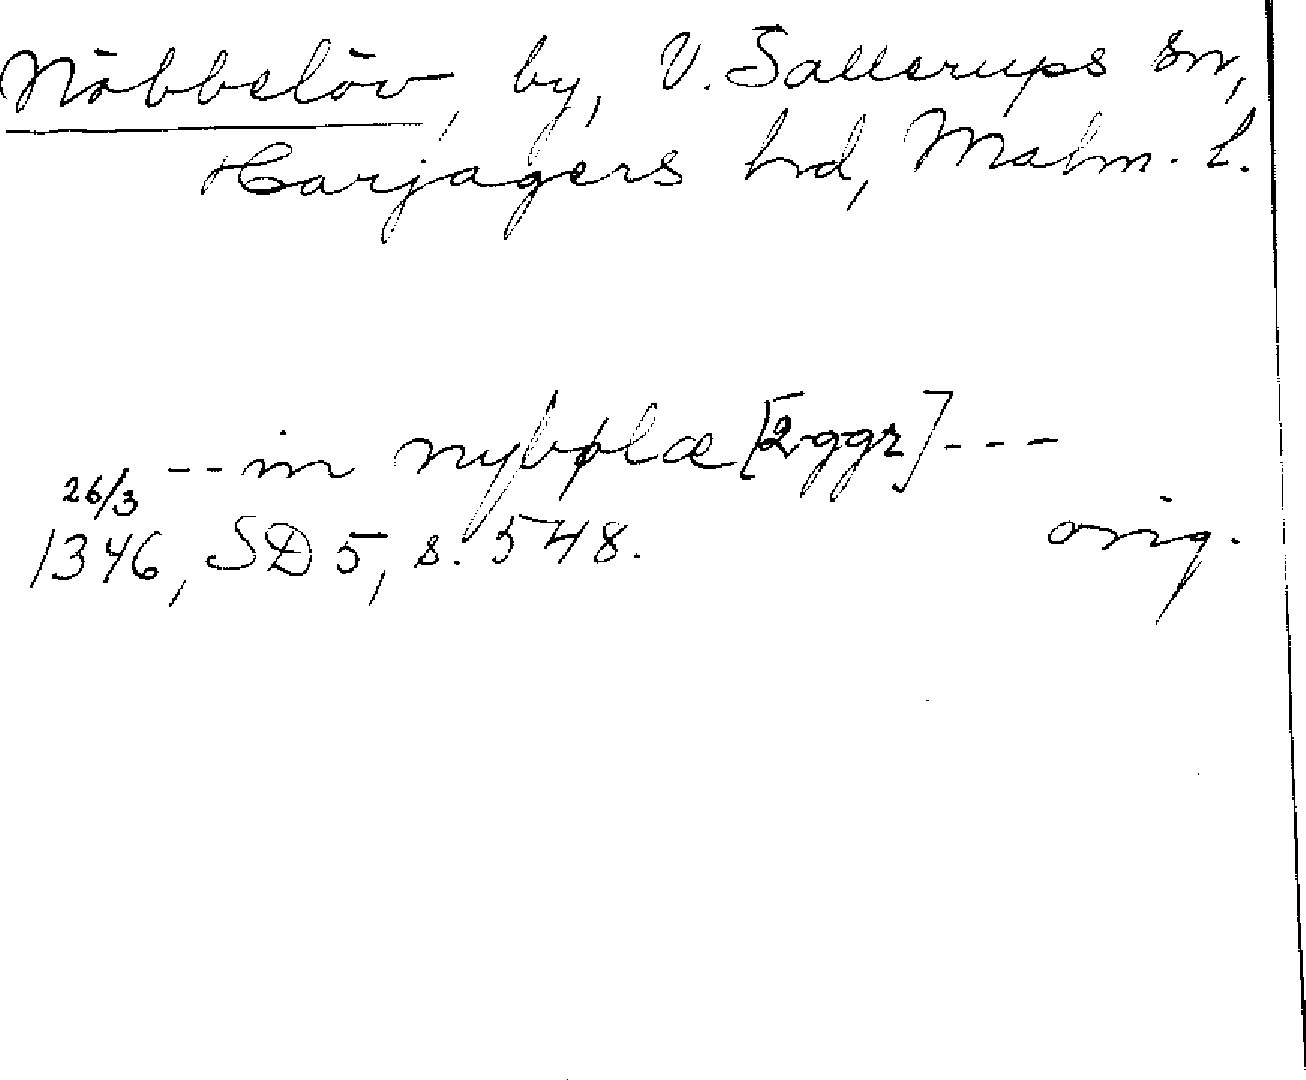 Nöbbelöv, by, V. Sallerups sn,
Harjagers hd, Malm. l.
-- in nybølæ [2 ggr] ---
26/3
1346, SD 5, s. 548. orig.